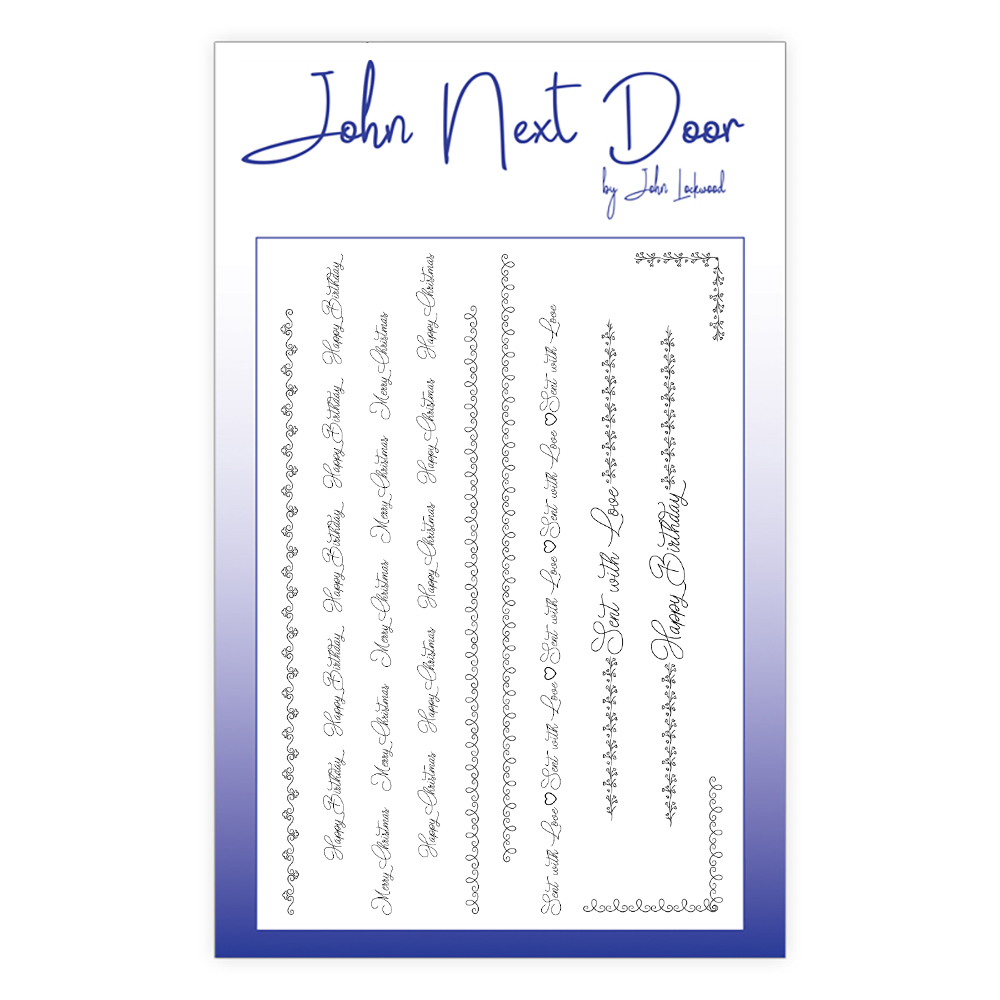 John Next Door
by John Lockwood
Happy Birthday Happy Birthday Happy Birthday Happy Birthday Happy Birthday
Merry Christmas Merry Christmas Merry Christmas Merry Christmas Merry Christmas
Happy Christmas Happy Christmas Happy Christmas Happy Christmas Happy Christmas
Sent with Love ♡ Sent with Love ♡ Sent with Love ♡ Sent with Love ♡ Sent with Love
Sent with Love
Happy Birthday